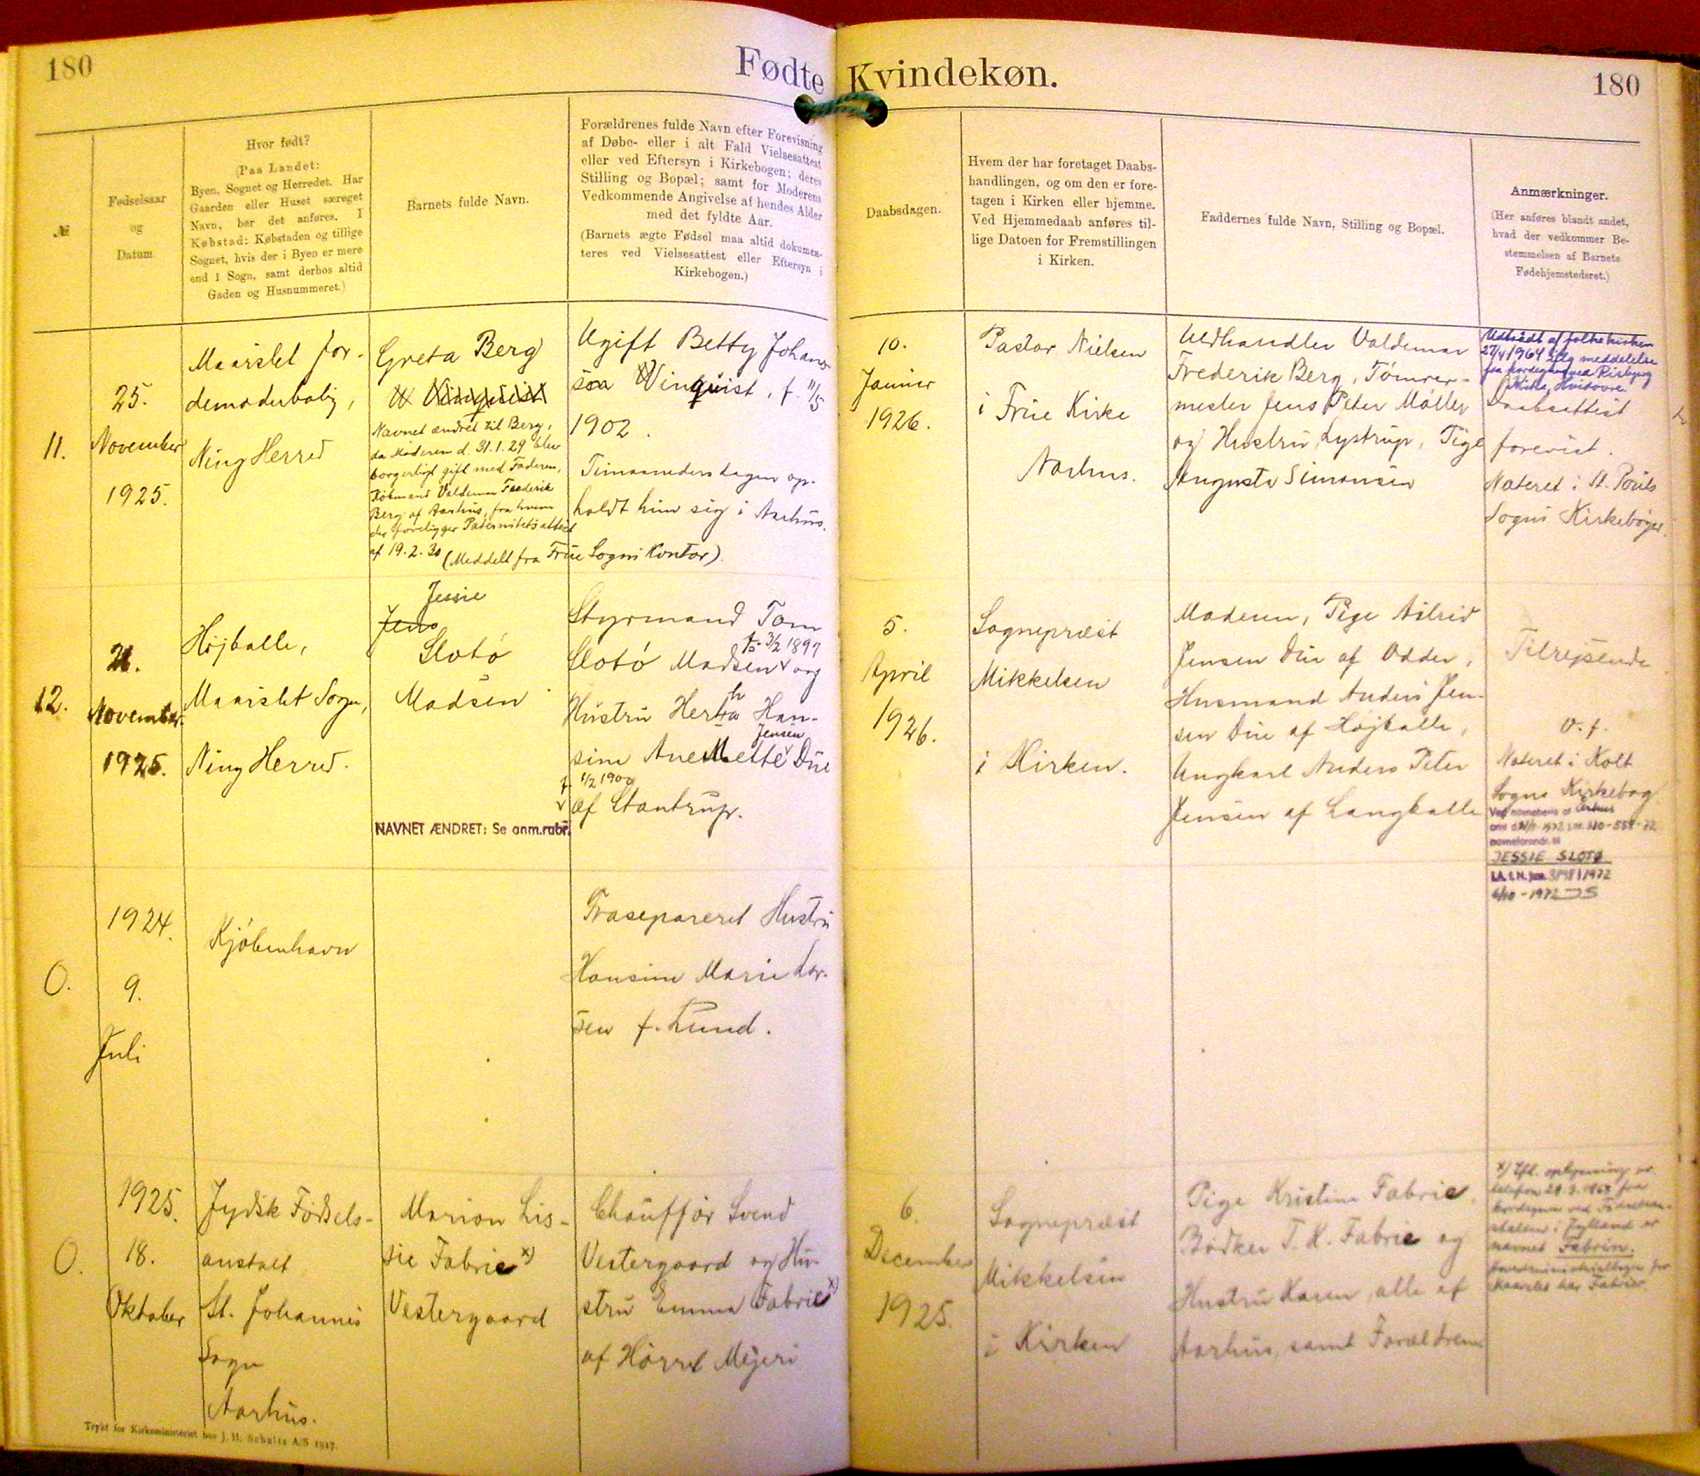 180
Fødte
№
Fødselsaar
og
Datum
Hvor født?
(Paa Landet:
Byen, Sognet og Herredet. Har
Gaarden eller Huset særeget
Navn, bør det anføres. I
Købstad: Købstaden og tillige
Sognet, hvis der i Byen er mere
end 1 Sogn, samt derhos altid
Gaden og Husnummeret.)
Barnets fulde Navn.
Forældrenes fulde Navn efter Forevisning
af Døbe- eller i alt Fald Vielsesattest
eller ved Eftersyn i Kirkebogen; deres
Stilling og Bopæl; samt for Moderens
Vedkommende Angivelse af hendes Alder
med det fyldte Aar.
(Barnets ægte Fødsel maa altid dokumen-
teres ved Vielsesattest eller Eftersyn i
Kirkebogen.)
11.
25.
November
1925.
Maarslet Jor-
demoderbolig,
Ning Herred
Greta Berg
Navnet ændret til Berg,
da Moderen d. 31.1.29 blev
borgerligt gift med Faderen,
Købmand Valdemar Frederik
Berg af Aarhus, fra hvem
der foreligger Paternitetsattest
af 19.2.30 (Meddelt fra Frue Sogns Kontor).
Ugift Betty Johan-
Winquist, f. 11/5
1902.
Timaanedersdagen op-
holdt hun sig i Aarhus.
12.
21.
November
1925.
Højballe,
Maarslet Sogn,
Ning Herred.
Jessie
Jens
Slotö
Madsen
NAVNET ÆNDRET: Se anm.rubr.
Styrmand Tom
f. 3/2 1897
Slotö Madsen og
Hustru Hertha Han-
Jensen
sine Ane Mette Due
f. 1/2 1900
af Stautrup.
O.
1924.
9.
Juli
Kjöbenhavn
Frasepareret Hustru
Hansine Marie Lar-
sen f. Lund.
O.
1925.
18.
Oktober
Jydsk Fødsels-
anstalt
St. Johannes
Sogn
Aarhus.
Marion Lis-
sie Fabrie x)
Vestergaard
Chauffør Svend
Vestergaard og Hu-
stru Emma Fabrie x)
af Hørret Mejeri
Trykt for Kirkeministeriet hos J. H. Schultz A/S 1917.
Kvindekøn.
180
Daabsdagen.
Hvem der har foretaget Daabs-
handlingen, og om den er fore-
tagen i Kirken eller hjemme.
Ved Hjemmedaab anføres til-
lige Datoen for Fremstillingen
i Kirken.
Faddernes fulde Navn, Stilling og Bopæl.
Anmærkninger.
(Her anføres blandt andet,
hvad der vedkommer Be-
stemmelsen af Barnets
Fødehjemstedsret.)
10.
Januar
1926.
Pastor Nielsen
i Frue Kirke
Aarhus.
Vedhandler Valdemar
Frederik Berg, Tömrer-
mester Jens Peter Möller
og Hustru, Lystrup, Pige
Augusta Simonsen
Udtrådt af folkekirken
27/4 1964 iflg meddelelse
fra kordegnen ved Risbjerg
Kirke, Hvidovre.
Daabsattest
forevist.
Noteret i St. Pouls
Sogns Kirkebøger.
5.
April
1926.
Sognepræst
Mikkelsen
i Kirken.
Moderen, Pige Astrid
Jensen Due af Odder,
Husmand Anders Jen-
sen Due af Højballe,
Ungkarl Anders Peter
Jensen af Langballe
Tilrejsende
v. f.
Noteret i Kolt
Sogns Kirkebog.
JESSIE SLOTØ
6/10-1972
6.
December
1925.
Sognepræst
Mikkelsen
i Kirken
Pige Kristine Fabrie,
Bødker T. K. Fabrie og
Hustru Karen, alle af
Aarhus, samt Forældrene
x) Ifl. oplysning pr.
telefon 29.3.1965 fra
kordegnen ved Fødsels-
anstalten i Jylland er
navnet Fabrin.